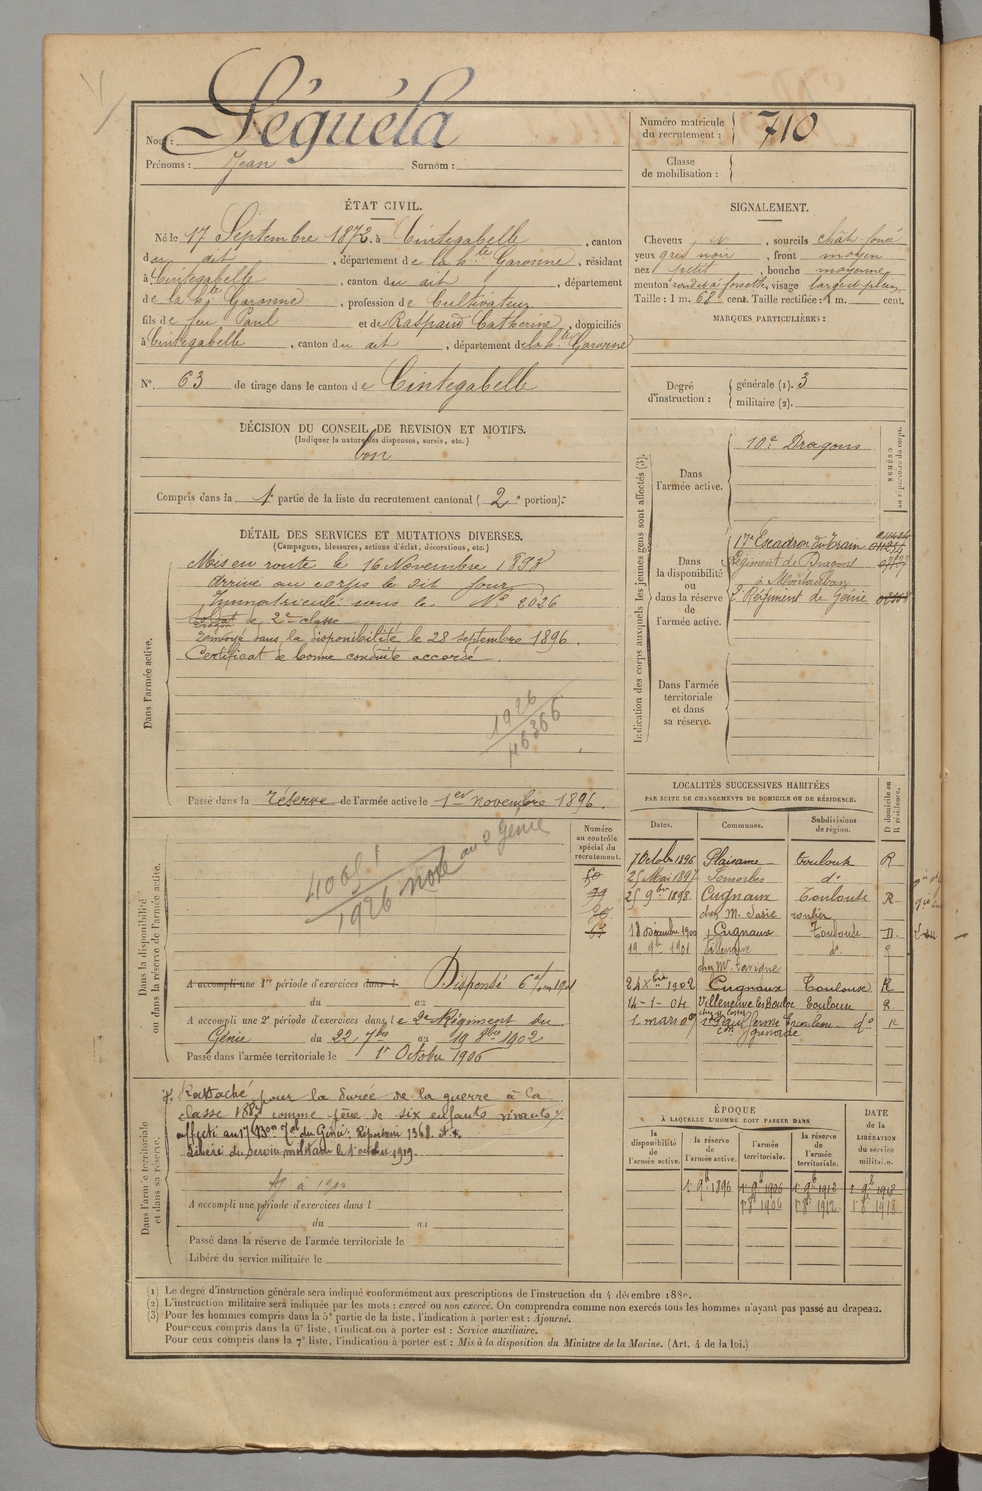 Nom : Séguéla
Prénoms : Jean Surnom :
Numéro matricule du recrutement : 710
Classe de mobilisation :
ÉTAT CIVIL.
Né le 17 Septembre 1872, à Cintegabelle, canton
du dit, département de la hte Garonne, résidant
à Cintegabelle, canton du dit, département
de la hte Garonne, profession de Cultivateur
fils de feu Paul et de Raspaud Catherine, domiciliés
à Cintegabelle, canton du dit, département de la hte Garonne
N°. 63 de tirage dans le canton de Cintegabelle
SIGNALEMENT.
Cheveux et, sourcils chât. foncé
yeux gris noir, front moyen
nez petit, bouche moyenne
menton rond à fossette, visage large et plein
Taille : 1 m. 68 cent. Taille rectifiée : 1 m. cent.
MARQUES PARTICULIÈRES :
Degré d'instruction : générale (1). 3
militaire (2).
DÉCISION DU CONSEIL DE REVISION ET MOTIFS.
(Indiquer la nature des dispenses, sursis, etc.)
bon
Compris dans la 1e partie de la liste du recrutement cantonal (2e portion).
Indication des corps auxquels les jeunes gens sont affectés (3).
NUMÉRO au répertoire du corps.
Dans l'armée active.
10e Dragons
Dans la disponibilité ou dans la réserve de l'armée active.
17e Escadron du Train
Régiment de Dragons
à Montauban
2e Régiment de Génie
Dans l'armée territoriale et dans sa réserve.
DÉTAIL DES SERVICES ET MUTATIONS DIVERSES.
(Campagnes, blessures, actions d'éclat, décorations, etc.)
Dans l'armée active.
Mis en route le 16 Novembre 1893
Arrivé au corps le dit jour
Immatriculé sous le N° 2026
de 2e classe
Renvoyé dans la disponibilité le 28 septembre 1896.
Certificat de bonne conduite accordé.
1926
46366
Passé dans la réserve de l'armée active le 1er novembre 1896.
LOCALITÉS SUCCESSIVES HABITÉES
PAR SUITE DE CHANGEMENTS DE DOMICILE OU DE RÉSIDENCE.
Dates. Communes. Subdivisions de région. D domicile ou R résidence.
7 Octobre 1896 Plaisance Toulouse R
25 Mai 1897 Lombez do
25 9bre 1898 Cugnaux Toulouse R
chez M.
18 Décembre 1900 Cugnaux Toulouse D
19 9bre 1901 do
24 Xbre 1902 Cugnaux Toulouse R
14-1-04 Villeneuve Toulouse R
1 mars 09 St Paul ferme do R
Dans la disponibilité ou dans la réserve de l'armée active.
Numéro au contrôle spécial du recrutement.
1926 note au 2 Génie
A accompli une 1re période d'exercices dans l Dispensé
du au
A accompli une 2e période d'exercices dans le 2e Régiment du
Génie du 22 7bre au 19 8bre 1902
Passé dans l'armée territoriale le 1er Octobre 1906
Dans l'armée territoriale et dans sa réserve.
Rattaché pour la durée de la guerre à la
classe comme père de six enfants vivants.
affecté au 17e Bon du Génie. Répertoire 1348.
Libéré du service militaire le 1er octobre 1919.
A accompli une période d'exercices dans l
du au
Passé dans la réserve de l'armée territoriale le
Libéré du service militaire le
ÉPOQUE
À LAQUELLE L'HOMME DOIT PASSER DANS
DATE de la LIBÉRATION du service militaire.
la disponibilité de l'armée active. la réserve de l'armée active. l'armée territoriale. la réserve de l'armée territoriale.
1er 9b 1896 1er 9b 1906 1er 9b 1912 1er 9b 1918
1er 8b 1906 1er 8b 1912 1er 8b 1918
(1) Le degré d'instruction générale sera indiqué conformément aux prescriptions de l'instruction du 4 décembre 1889.
(2) L'instruction militaire sera indiquée par les mots : exercé ou non exercé. On comprendra comme non exercés tous les hommes n'ayant pas passé au drapeau.
(3) Pour les hommes compris dans la 5e partie de la liste, l'indication à porter est : Ajourné.
Pour ceux compris dans la 6e liste, l'indication à porter est : Service auxiliaire.
Pour ceux compris dans la 7e liste, l'indication à porter est : Mis à la disposition du Ministre de la Marine. (Art. 4 de la loi.)